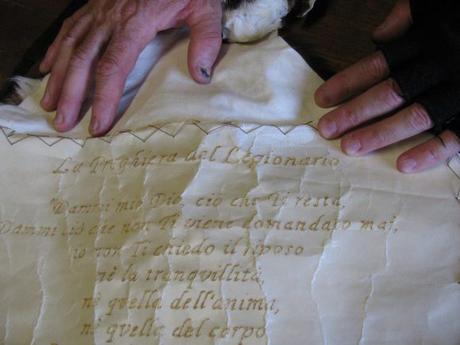 La Preghiera del Legionario
"Dammi mio Dio, ciò che Ti resta,
Dammi ciò che non Ti viene domandato mai,
io non Ti chiedo il riposo
né la tranquillità,
né quella dell'anima,
né quella del corpo